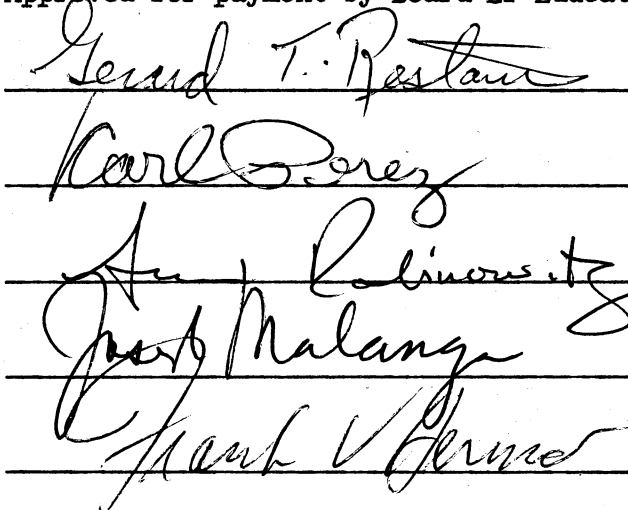 Approved for payment by Board
Gerard T. Restaino
Karl Perez
Rabinowitz
Joseph Malanga
Frank V